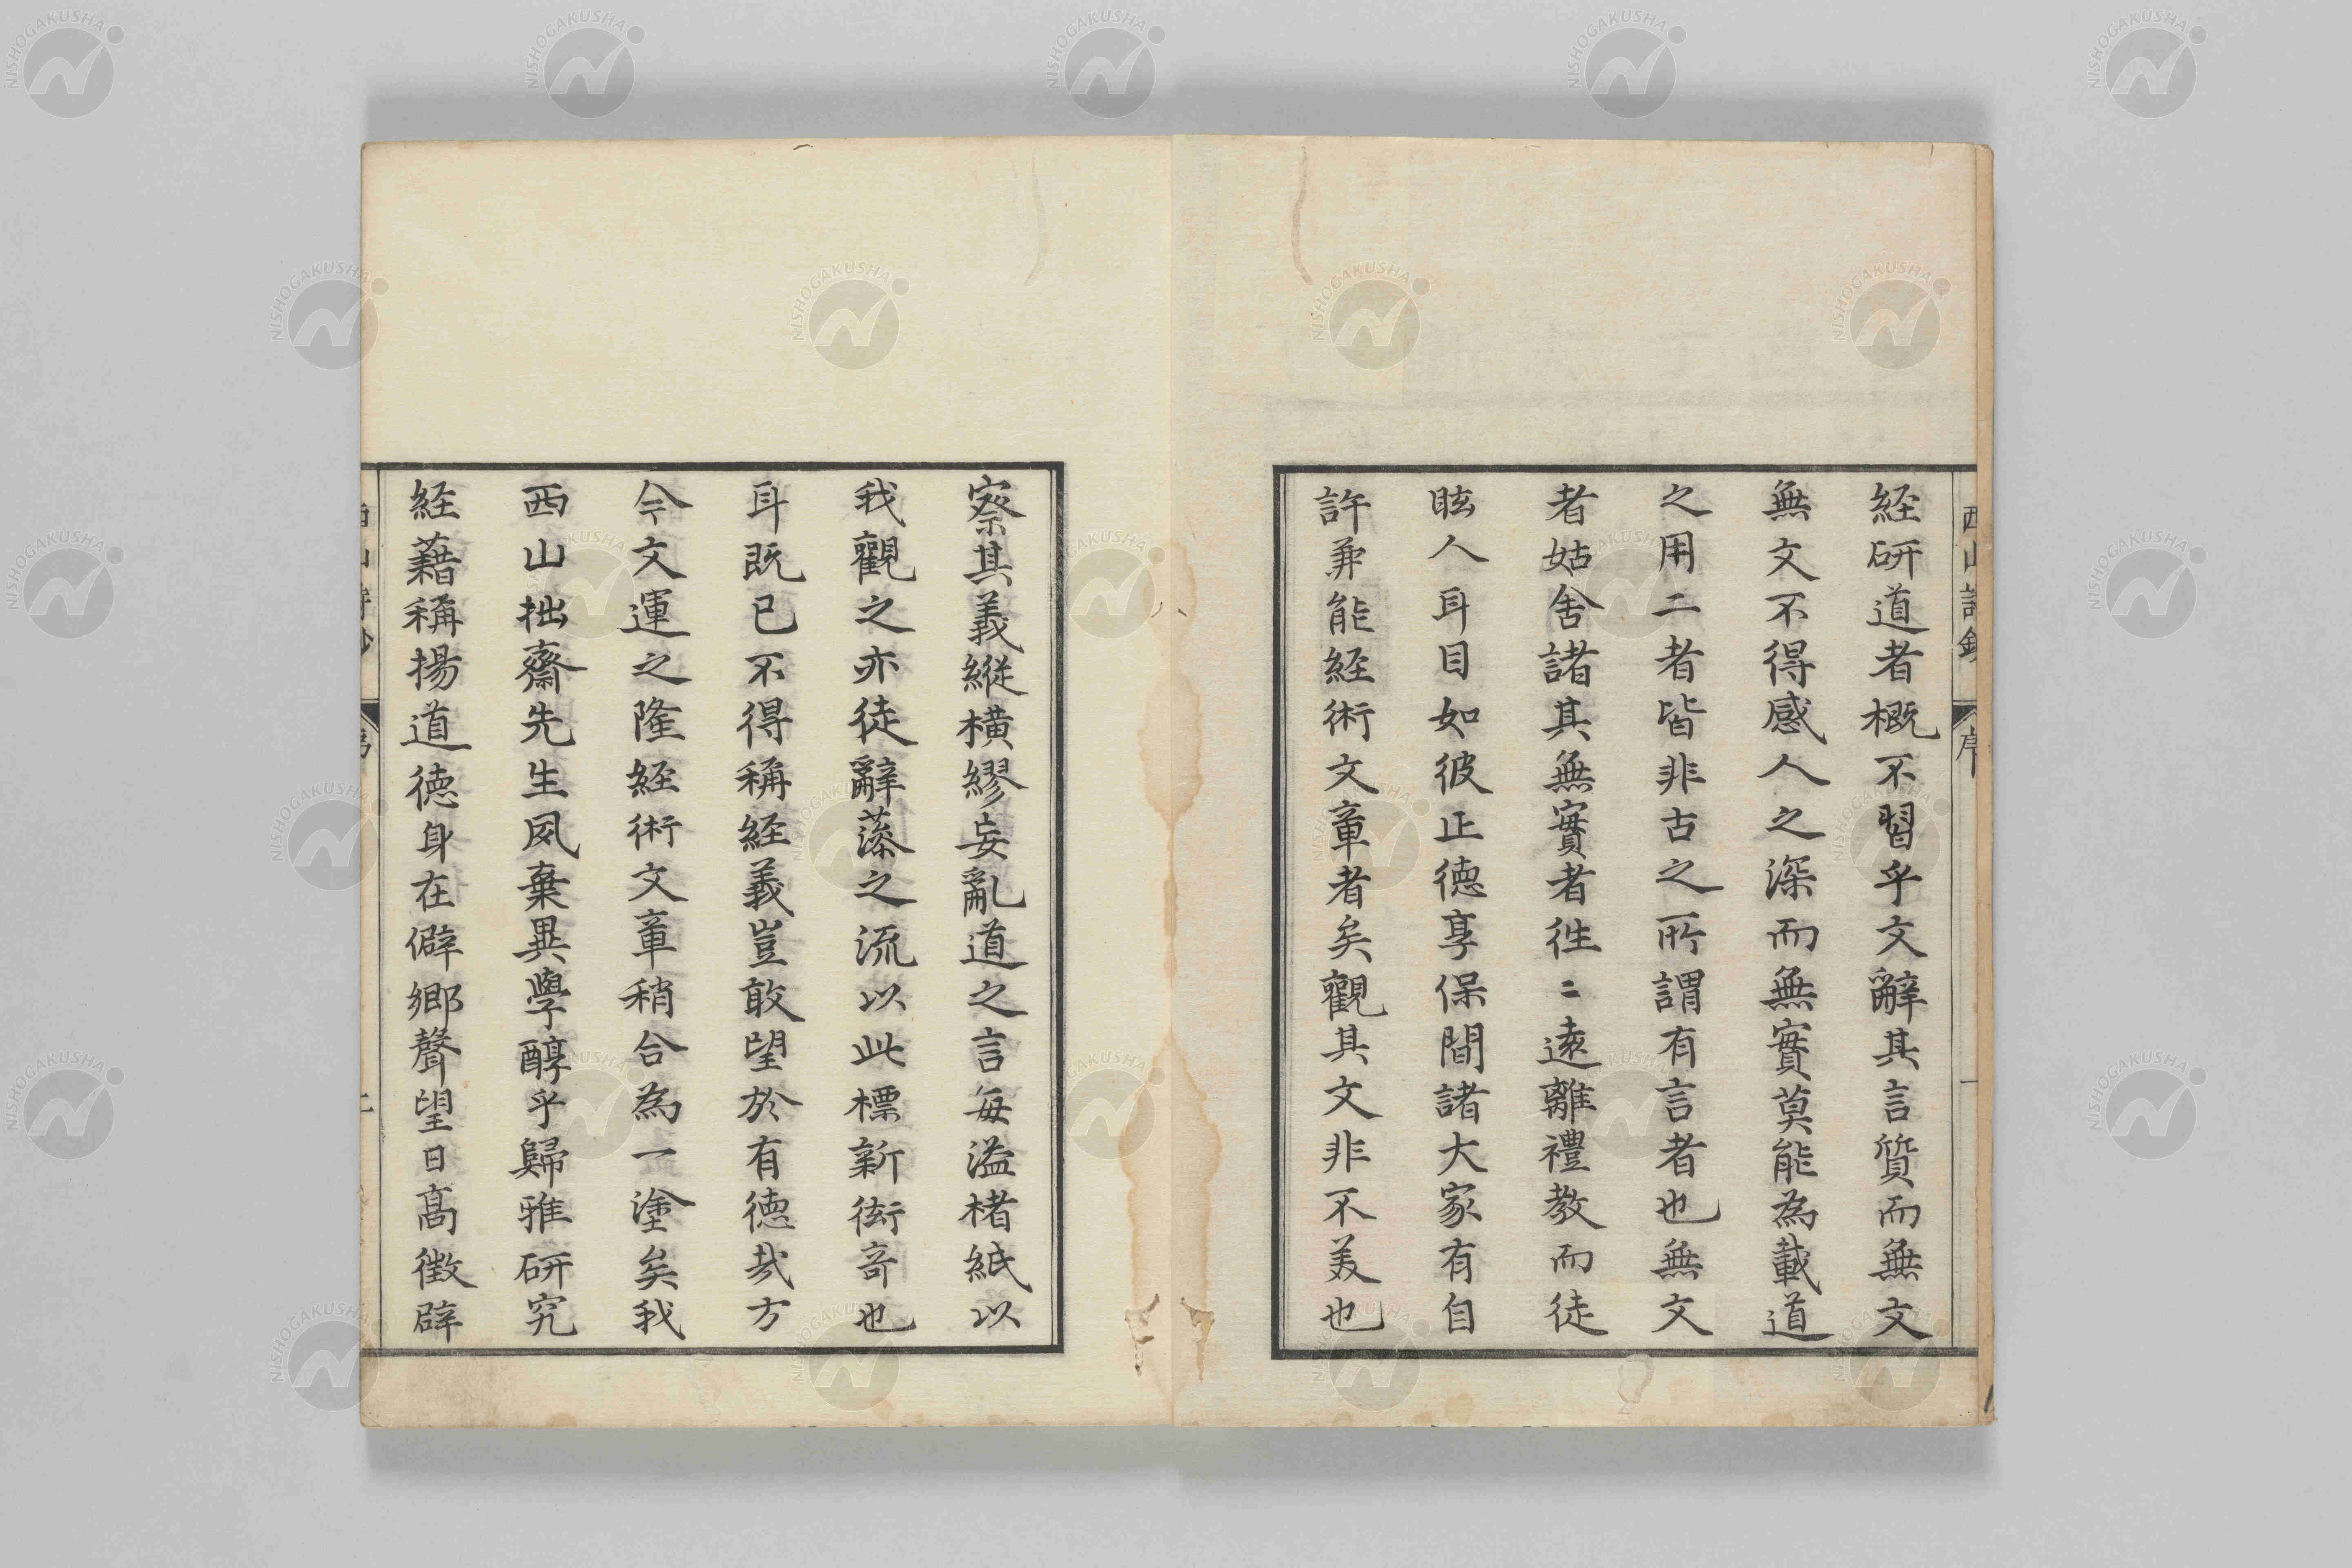 経研道者概不習乎文辭其言質而無文
無文不得感人之深而無實莫能為載道
之用二者皆非古之所謂有言者也無文
者姑舍諸其無實者徃〻遠離禮教而徒
眩人耳目如彼正德享保間諸大家有自
許兼能経術文章者矣觀其文非不美也
察其義縱横繆妄亂道之言每溢楮紙以
我觀之亦徒辭藻之流以此標新衒奇也
耳既已不得稱経義豈敢望於有德哉方
今文運之隆経術文章稍合為一塗矣我
西山拙齋先生夙棄異學醇乎歸雅研究
経藉稱揚道德身在僻鄉聲望日高徴辟
西山詩鈔
序
一
二
NISHOGAKUSHA